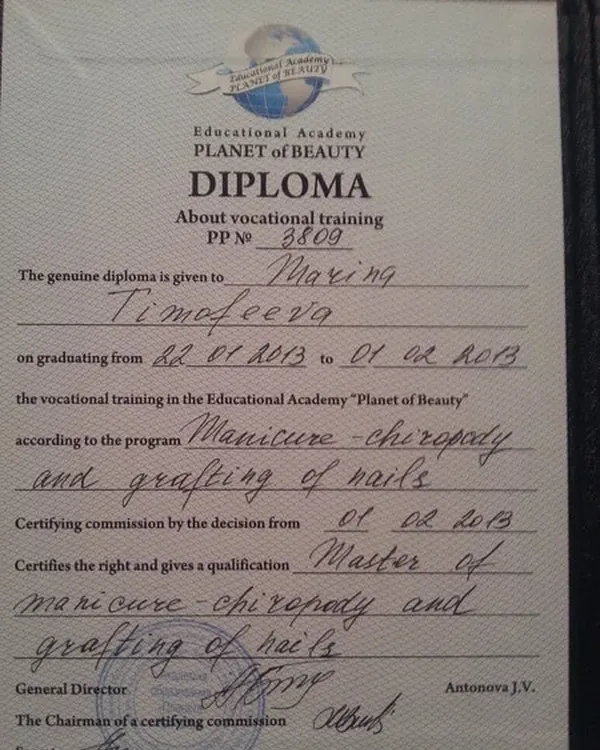 Educational Academy
PLANET of BEAUTY
Educational Academy
PLANET of BEAUTY
DIPLOMA
About vocational training
PP № 3809
The genuine diploma is given to Marina
Timofeeva
on graduating from 22 01 2013 to 01 02 2013
the vocational training in the Educational Academy “Planet of Beauty”
according to the program Manicure-chiropody
and grafting of nails
Certifying commission by the decision from 01 02 2013
Certifies the right and gives a qualification Master of
manicure-chiropody and
grafting of nails
General Director Antonova J.V.
The Chairman of a certifying commission